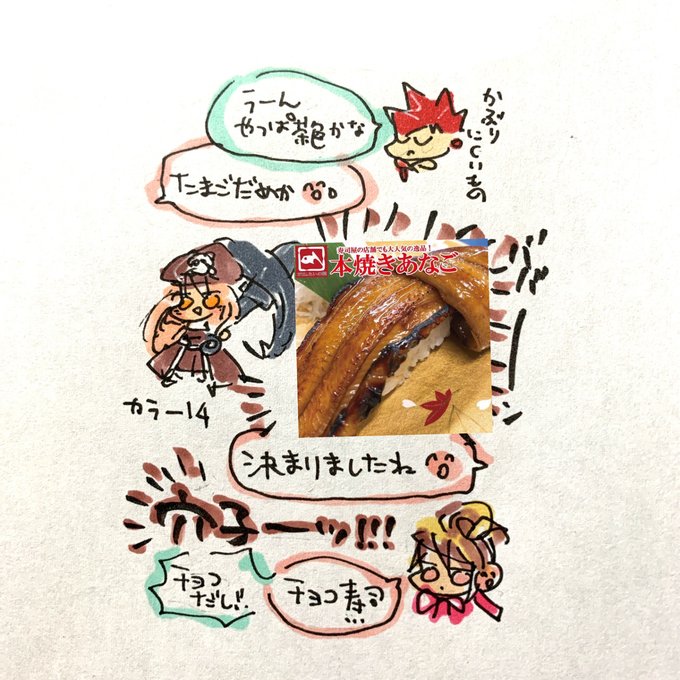 うーん
やっぱ茶色かな
かぶり
にくいもの
たまごだめか
寿司屋の店舗でも大人気の逸品！
本焼きあなご
カラー14
決まりましたね
穴子ーッ!!!
チョコ
だしぃ
チョコ寿司